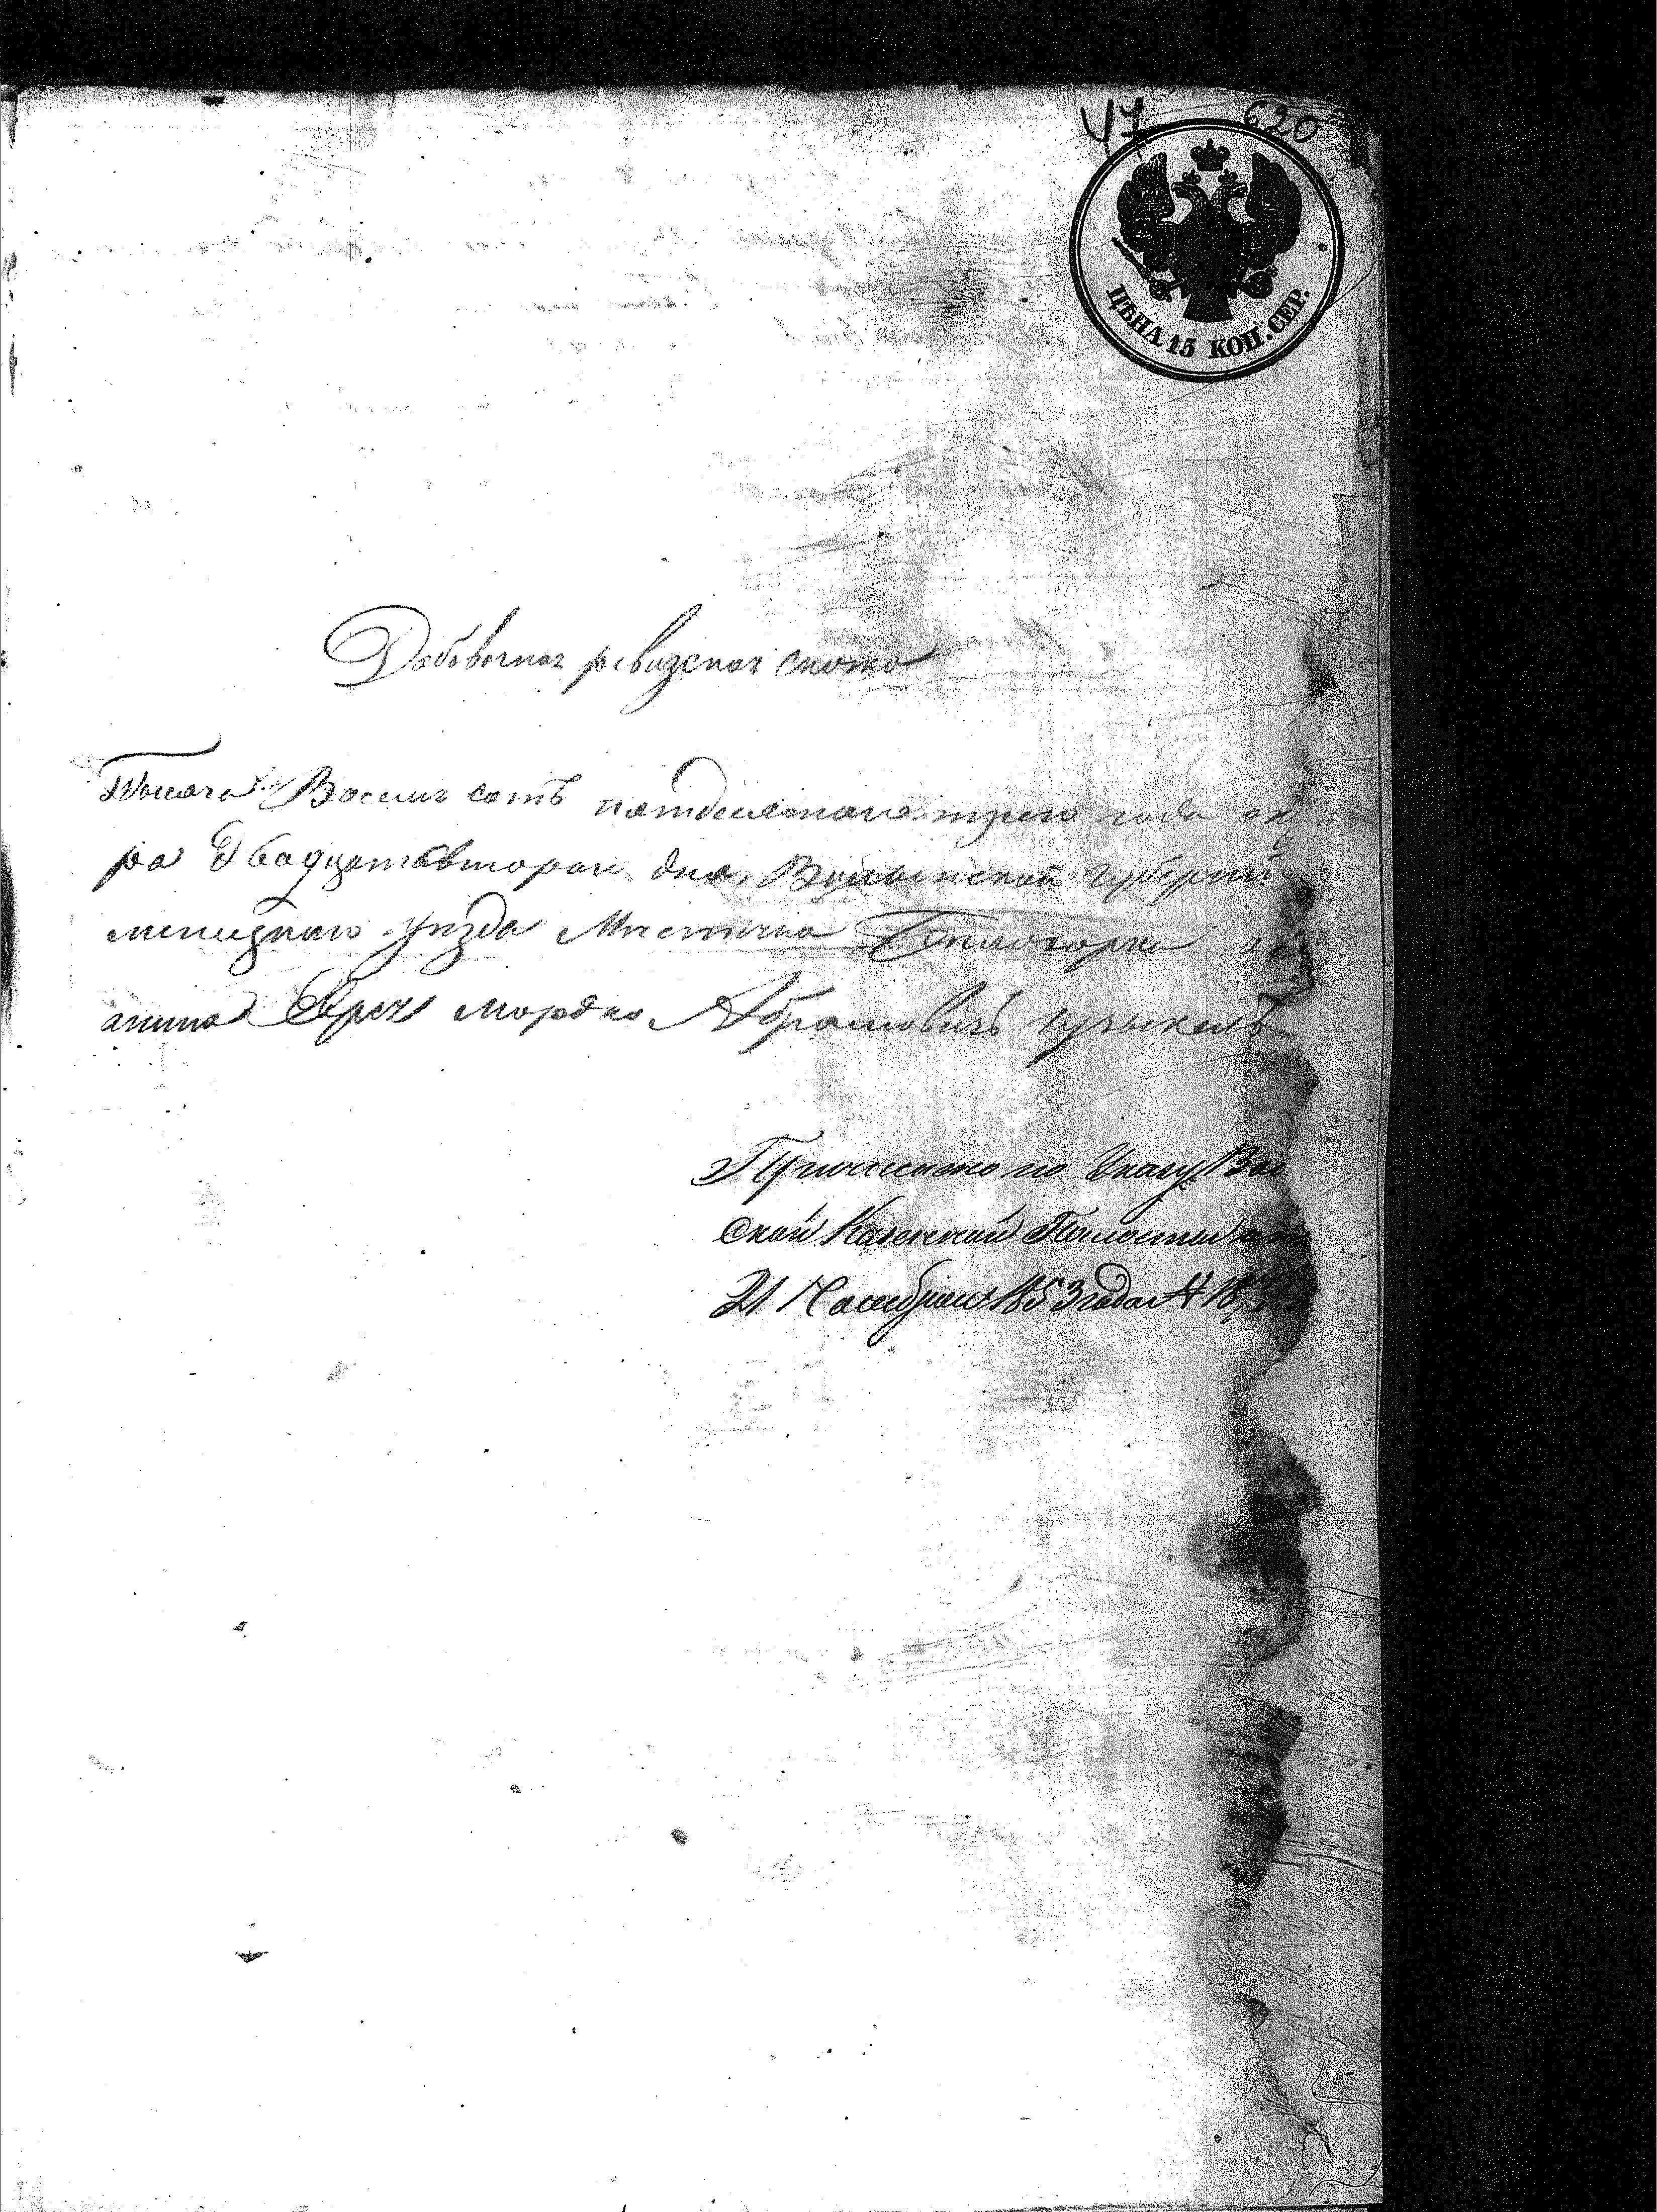 47 620
ЦѢНА 15 КОП. СЕР.
Добовочная ревизская скаска
Тысяча Восемь сотъ пятдесятаго трего года ок
ра Двадцатвторого дня, Волынской Губерніи
менецкаго уезда Местечка Белогорки
анина Еврея Мордко Абрамовичъ
Причислено по Указу Вол
ской Казенной Палаты от
21 Ноября 1853 года № 18